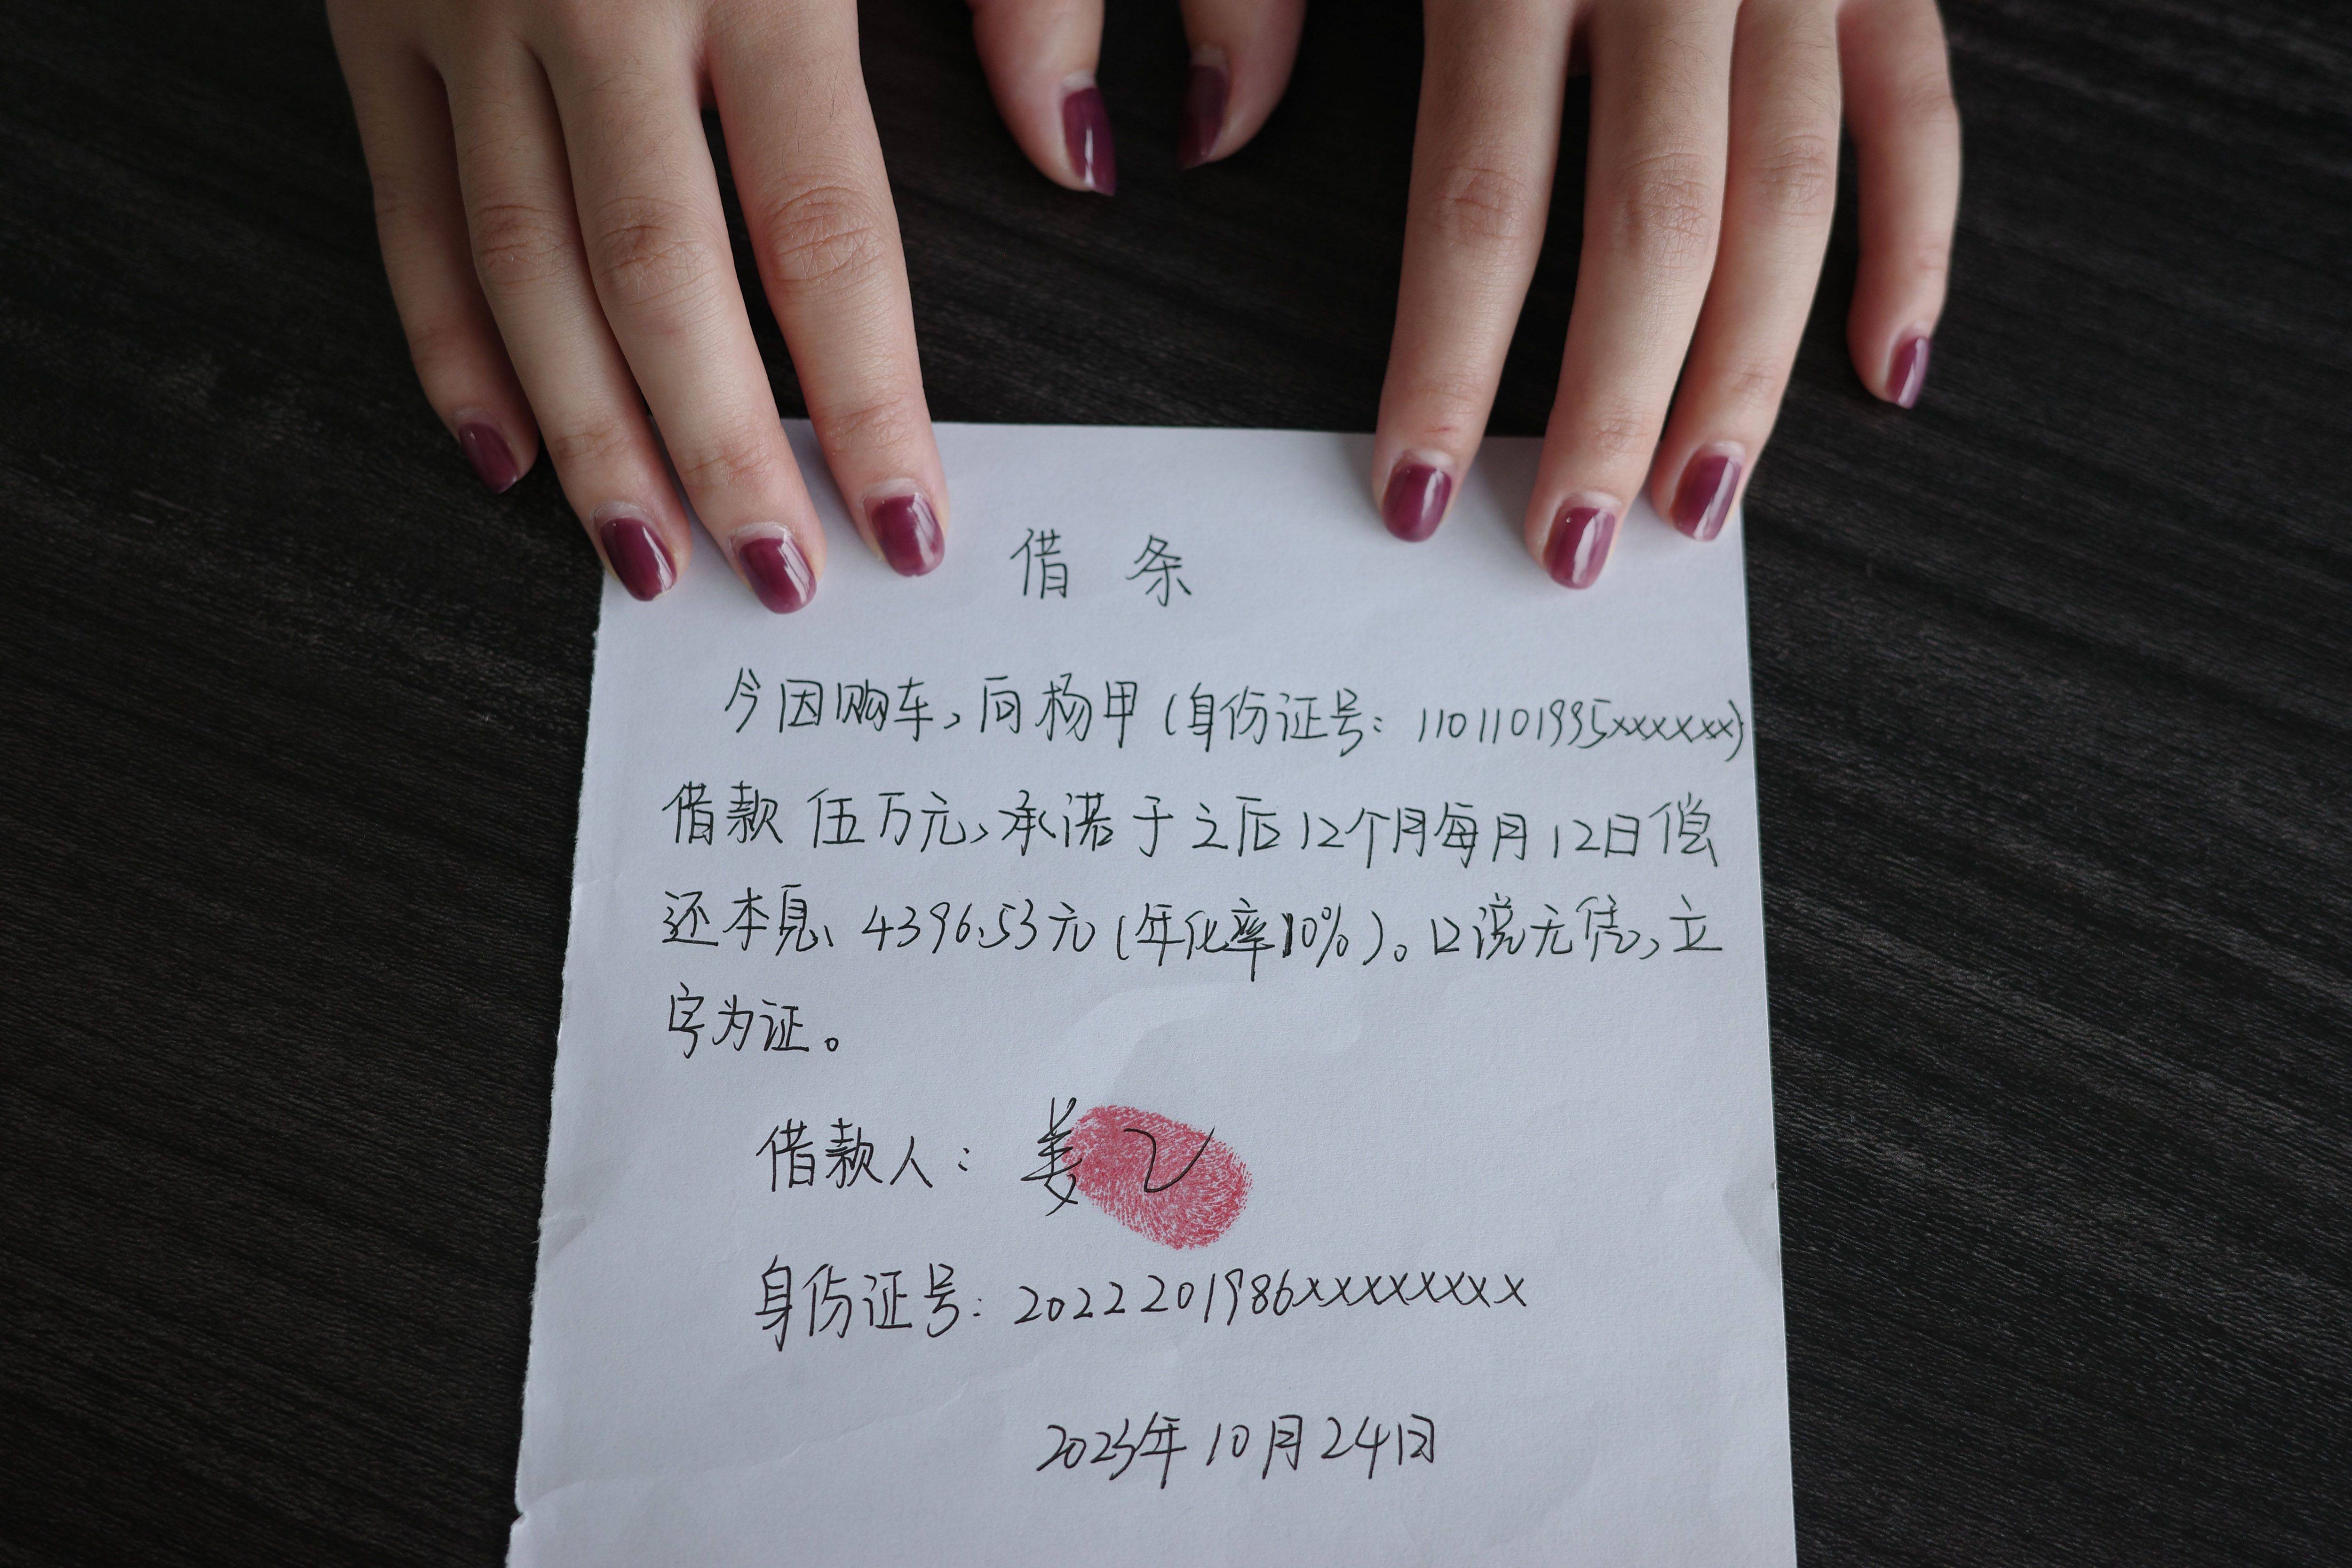 借 条
今因购车，向杨甲（身份证号：1101101995xxxxxx）
借款伍万元，承诺于之后12个月每月12日偿
还本息、4396.53元（年化率10%）。口说无凭，立
字为证。
借款人：姜乙
身份证号：2022201986xxxxxxxx
2023年10月24日